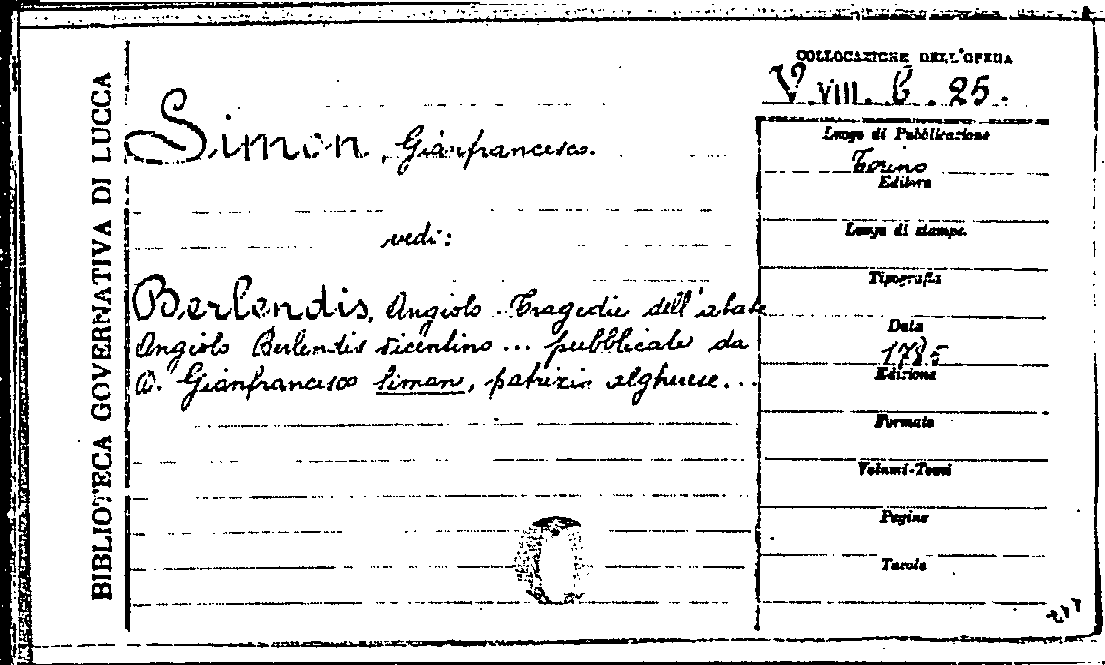 BIBLIOTECA GOVERNATIVA DI LUCCA
COLLOCAZIONE DELL'OPERA
V. VIII. b. 25.
Simon, Gianfrancesco.
vedi:
Berlendis, Angiolo. Tragedie dell'abate
Angiolo Berlendis vicentino ... pubblicate da
D. Gianfrancesco Simon, patrizio algherese...
Luogo di Pubblicazione
Torino
Editore
Luogo di stampa
Tipografia
Data
1785
Edizione
Formato
Volumi-Tomi
Pagine
Tavole